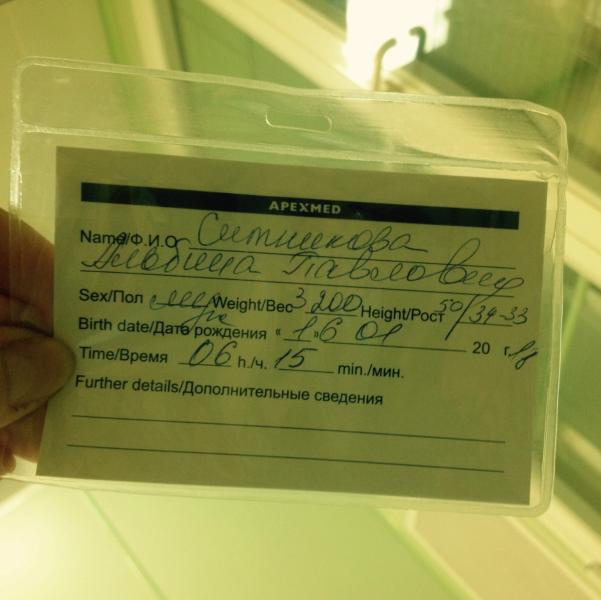 APEXMED
Name/Ф.И.О. Ситникова
Альбина Павловна
Sex/Пол муж Weight/Вес 3200 Height/Рост 50/34-33
Birth date/Дата рождения « 16 » 01 20 18 г.
Time/Время 06 h./ч. 15 min./мин.
Further details/Дополнительные сведения